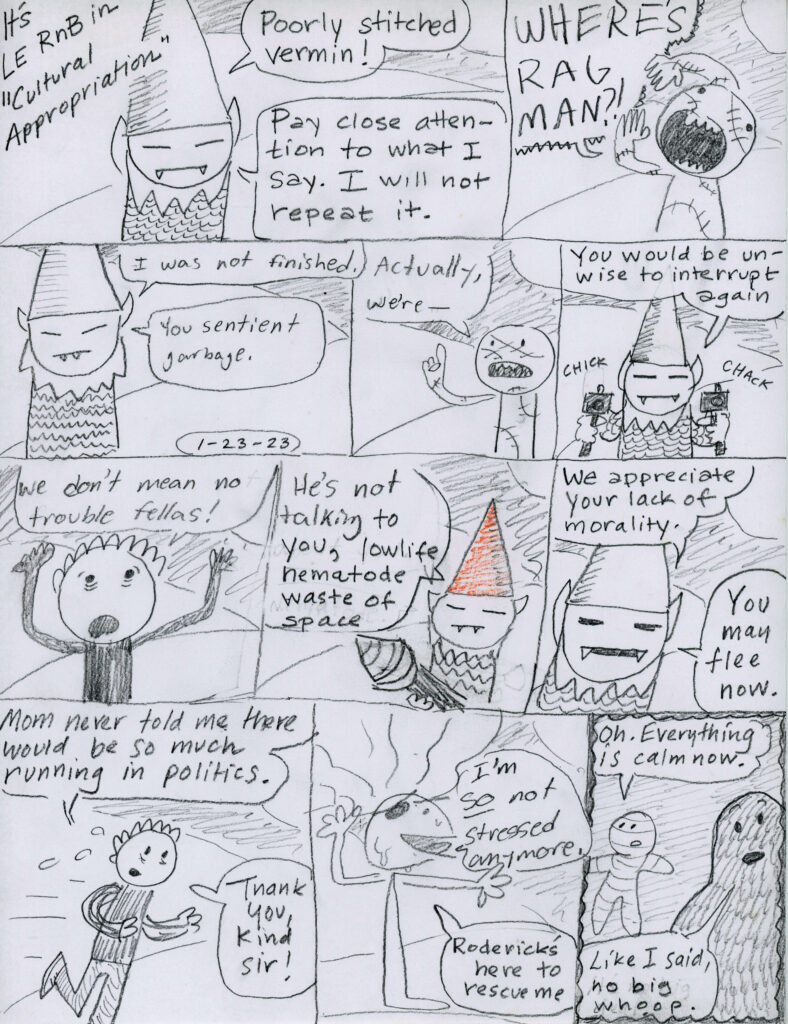 It's
LE RnB in
"Cultural
Appropriation"
Poorly stitched
vermin!
Pay close atten-
tion to what I
say. I will not
repeat it.
WHERE'S
RAG
MAN?!
I was not finished.
You sentient
garbage.
1-23-23
Actually,
we're—
You would be un-
wise to interrupt
again
CHICK
CHACK
We don't mean no
trouble fellas!
He's not
talking to
you, lowlife
nematode
waste of
space
We appreciate
your lack of
morality.
You
may
flee
now.
Mom never told me there
would be so much
running in politics.
Thank
you,
kind
sir!
I'm
so not
stressed
anymore.
Roderick's
here to
rescue me
Oh. Everything
is calm now.
Like I said,
no big
whoop.